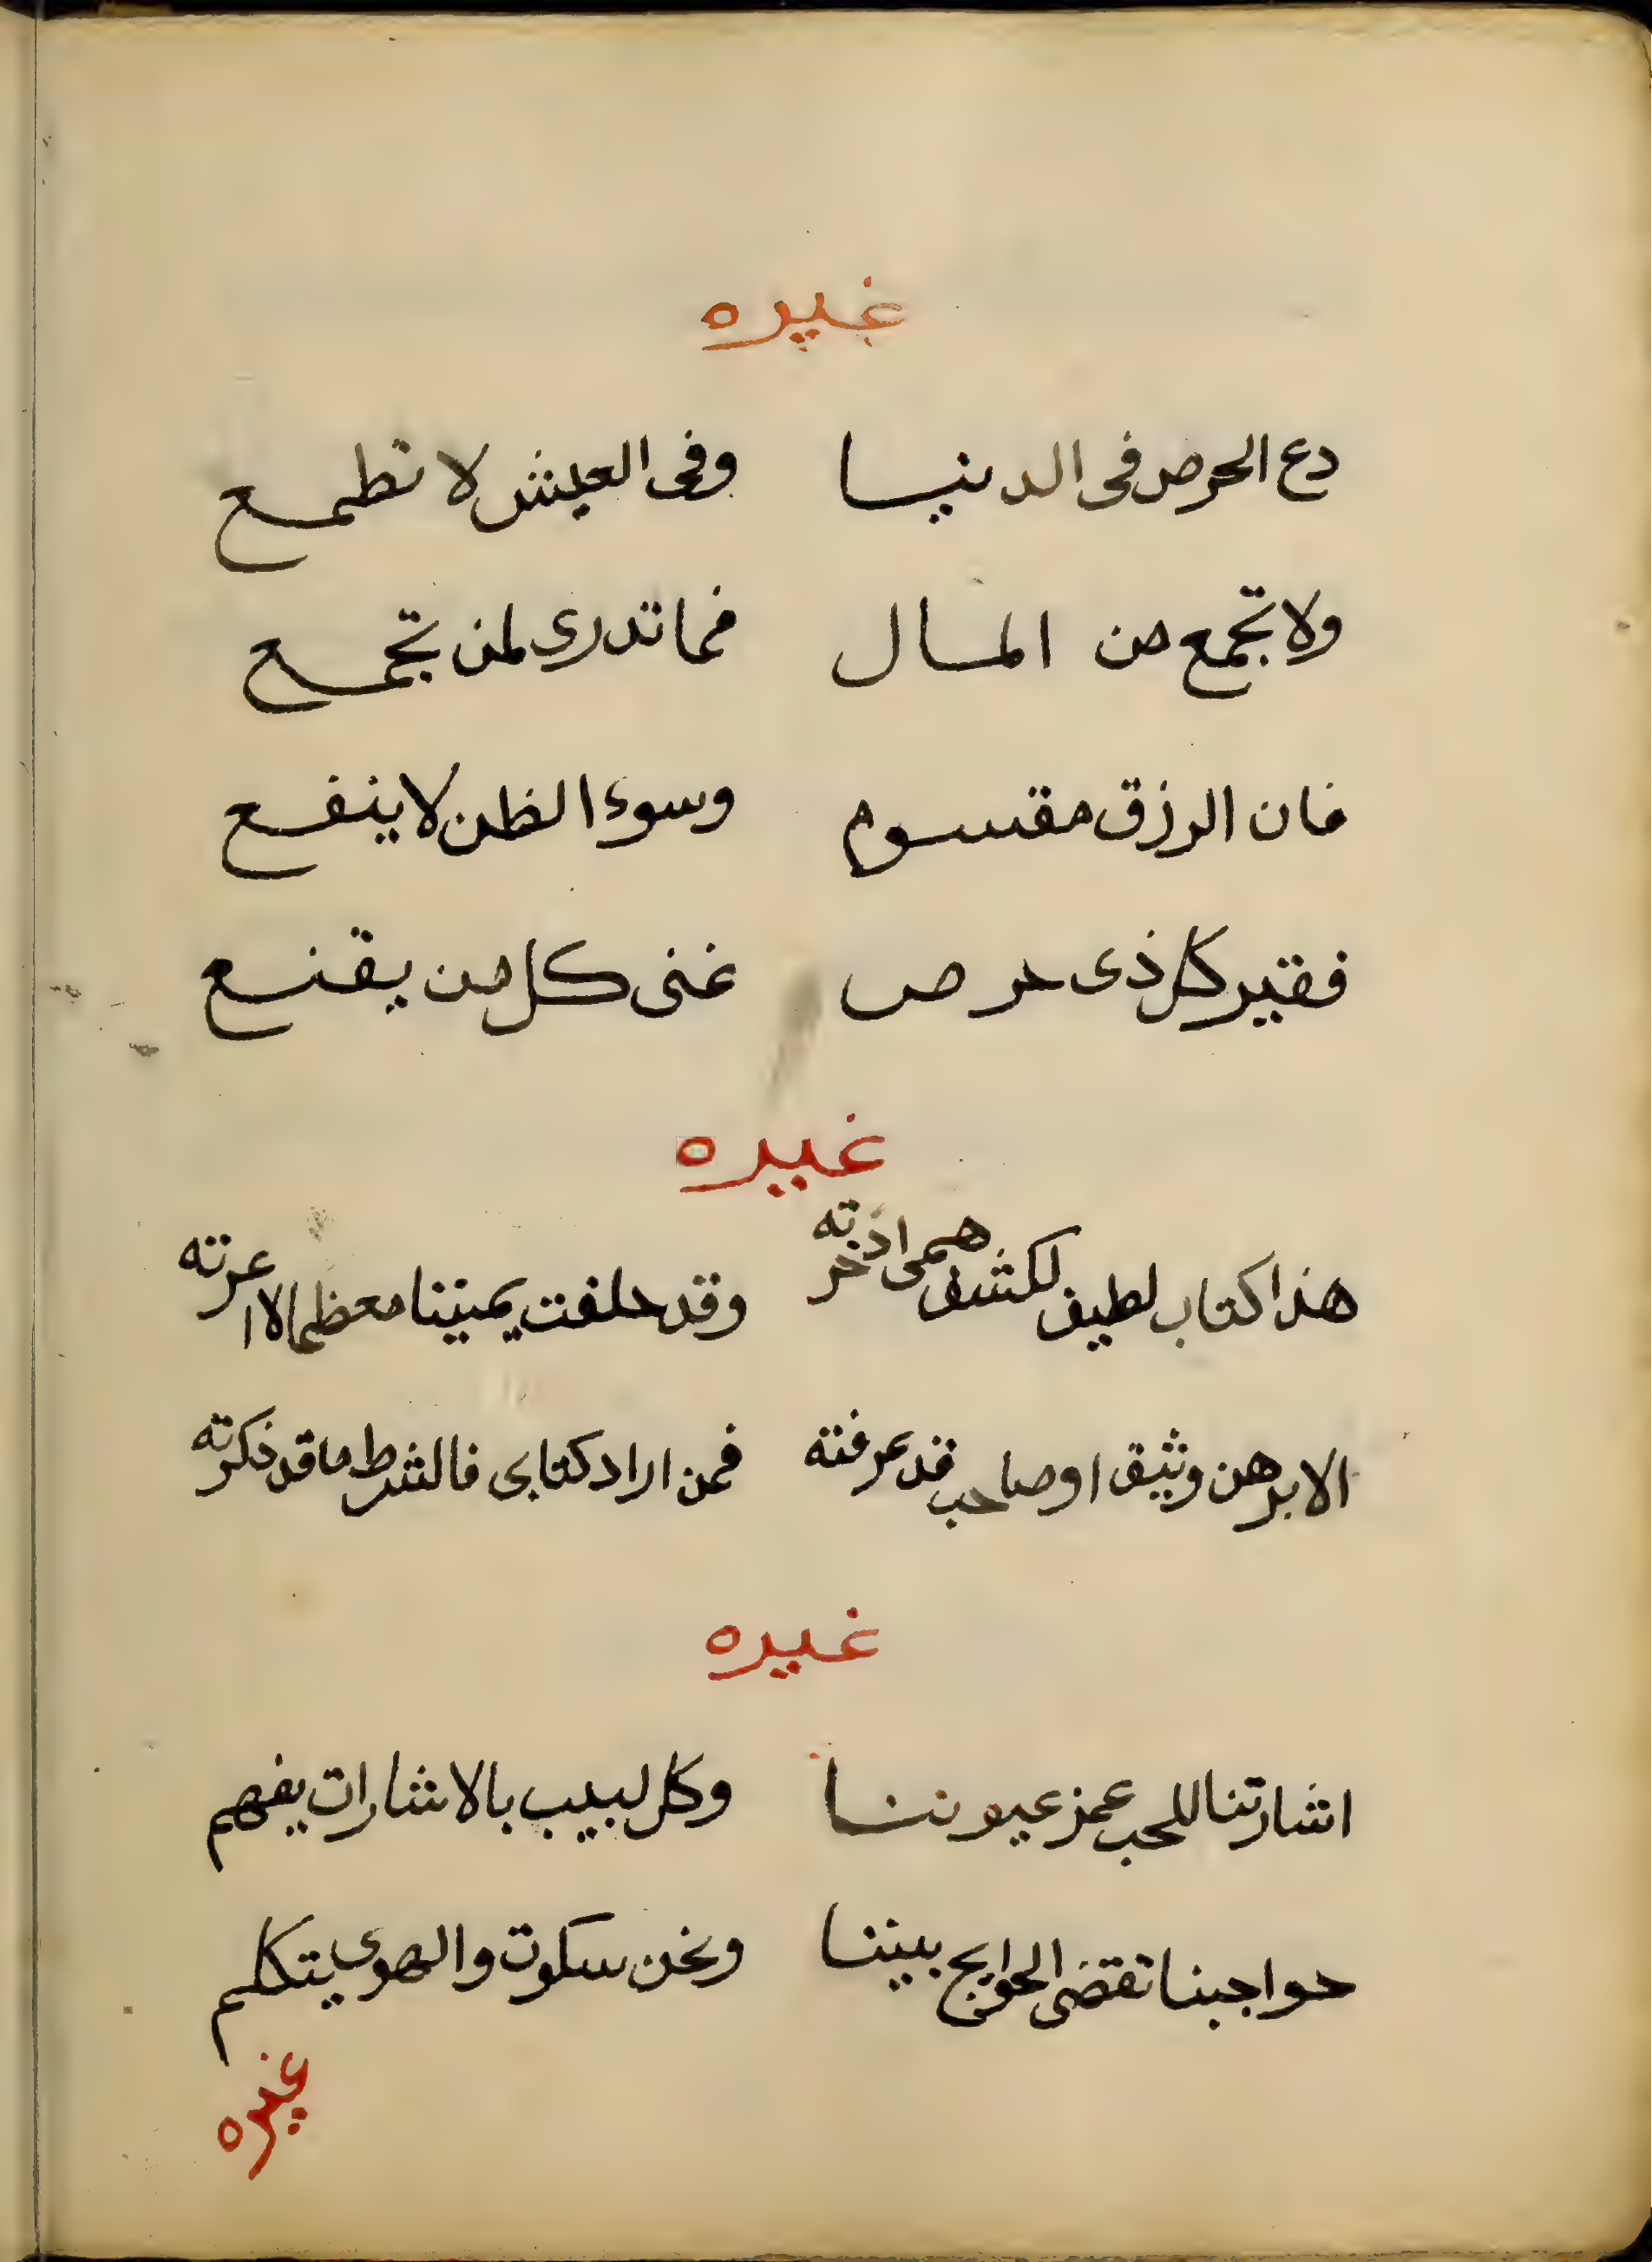 غيره
دع الحرص فى الدنيا وفى العيش لا تطمع
ولا تجمع من المال فما تدرى لمن تجمع
فان الرزق مقسوم وسوء الظن لا ينفع
فقير كل ذى حرص غنى كل من يقنع
غيره
هذا كتاب لطيف لكشف همى اذخرته وقد حلفت يمينا معظما لا اعرته
الا برهن وثيق او صاحب قد عرفته فمن اراد كتابى فالشرط ما قد ذكرته
غيره
اشارتنا للحب غمز عيوننا وكل لبيب بالاشارات يفهم
حواجبنا تقضى الحوايج بيننا ونحن سكوت والهوى يتكلم
غيره